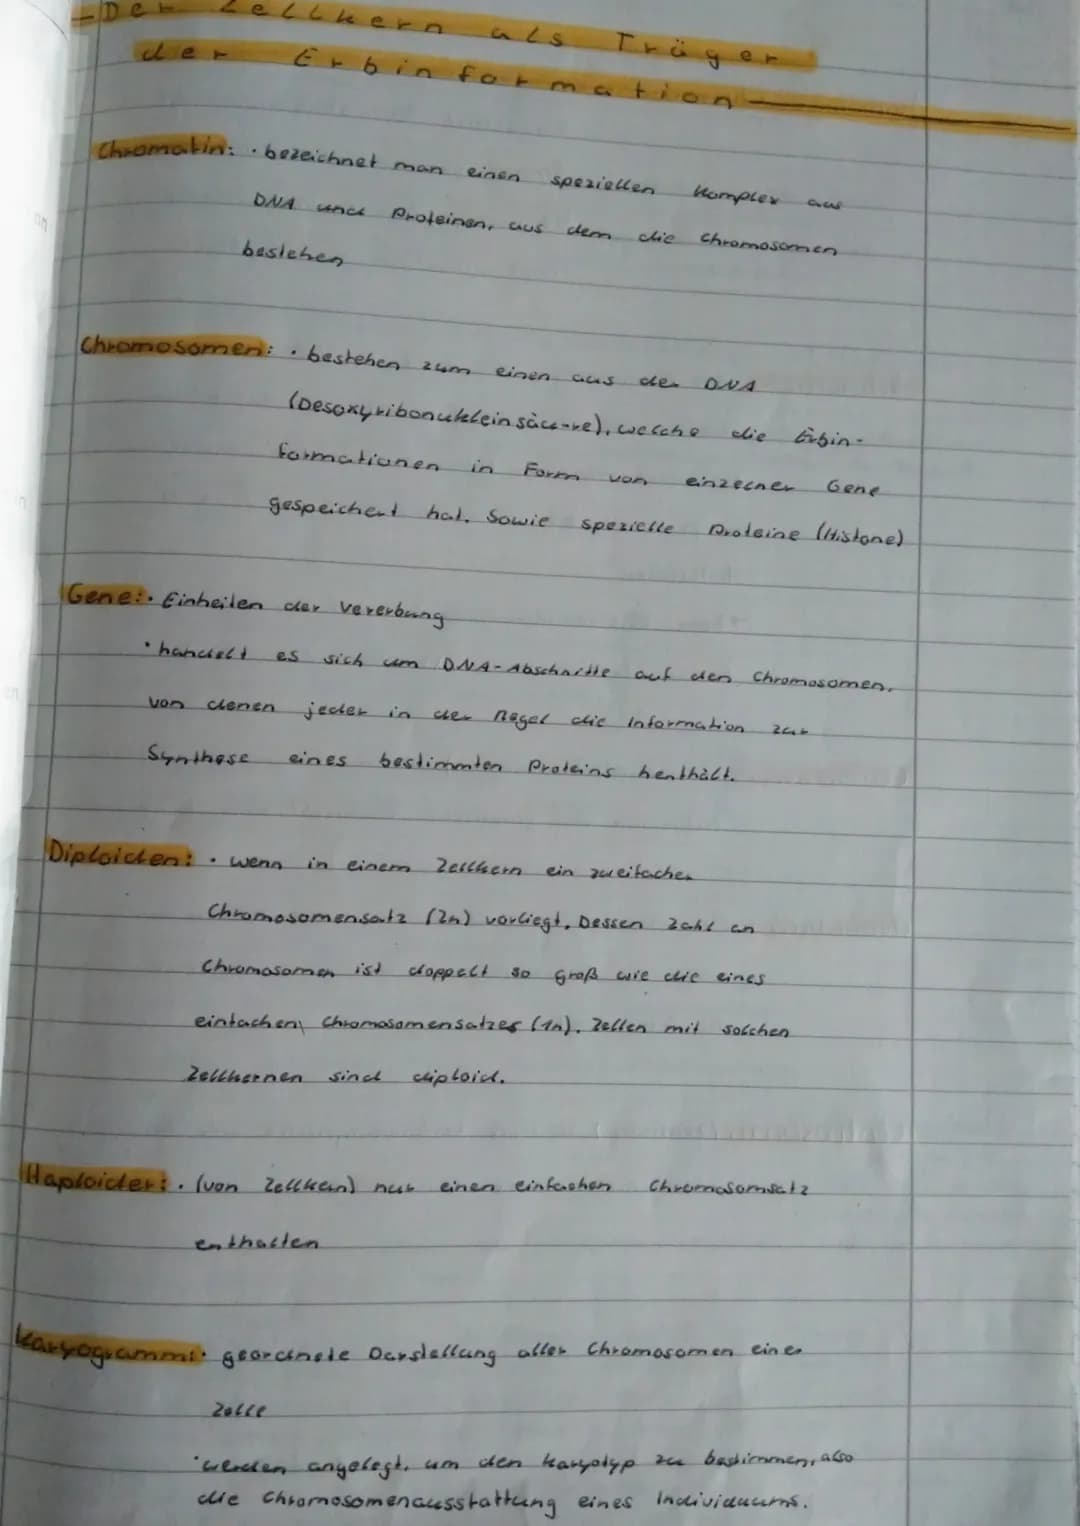 Der Zellkern als Träger
der Erbinformation
Chromatin: · bezeichnet man einen speziellen Komplex aus
DNA und Proteinen, aus dem die Chromosomen
bestehen
Chromosomen: · bestehen zum einen aus der DNA
(Desoxyribonukleinsäu-re), welche die Erbin-
formationen in Form von einzelner Gene
gespeichert hat. Sowie spezielle Proteine (Histone)
Gene: · Einheiten der Vererbung
· handelt es sich um DNA-Abschnitte auf den Chromosomen,
von denen jeder in der Regel die Information zur
Synthese eines bestimmten Proteins henthält.
Diploiden: · wenn in einem Zellkern ein zweifacher
Chromosomensatz (2n) vorliegt. Dessen Zahl an
Chromosomen ist doppelt so groß wie die eines
einfachen Chromosomensatzes (1n). Zellen mit solchen
Zellkernen sind diploid.
Haploider: · (von Zellken) nur einen einfachen Chromosomsatz
enthalten
Karyogramm: · geordnete Darstellung aller Chromosomen einer
Zelle
· werden angelegt, um den Karyotyp zu bestimmen, also
die Chromosomenausstattung eines Individuums.